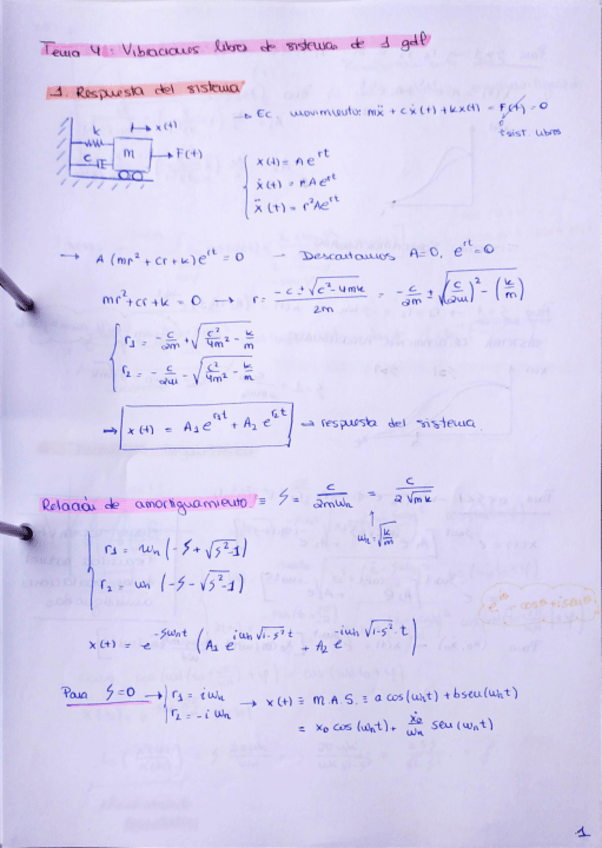 Tema 4: Vibraciones libres de sistemas de 1 gdl
1. Respuesta del sistema
k
c
m
x(t)
F(t)
→ Ec movimiento: mẍ + cẋ(t) + kx(t) = F(t) = 0
sist. libres
x(t) = A e^{rt}
ẋ(t) = rAe^{rt}
ẍ(t) = r²Ae^{rt}
→ A (mr² + cr + k)e^{rt} = 0 → Descartamos A=0, e^{rt}=0
mr²+cr+k = 0 → r = (-c ± √(c²-4mk))/2m = -c/2m ± √((c/2m)² - (k/m))
r₁ = -c/2m + √(c²/4m² - k/m)
r₂ = -c/2m - √(c²/4m² - k/m)
⇒ x(t) = A₁ e^{r₁t} + A₂ e^{r₂t} ⇒ respuesta del sistema.
Relación de amortiguamiento ≡ ζ = c/2mωn = c/2√mk
↑
ωn = √(k/m)
r₁ = ωn (-ζ + √(ζ²-1))
r₂ = ωn (-ζ - √(ζ²-1))
x(t) = e^{-ζωnt} (A₁ e^{iωn√(1-ζ²) t} + A₂ e^{-iωn√(1-ζ²)·t})
Para ζ=0 → r₁ = iωn
r₂ = -iωn
→ x(t) ≡ M.A.S. ≡ a cos(ωnt) + b sen(ωnt)
= x₀ cos(ωnt) + ẋ₀/ωn sen(ωnt)
1